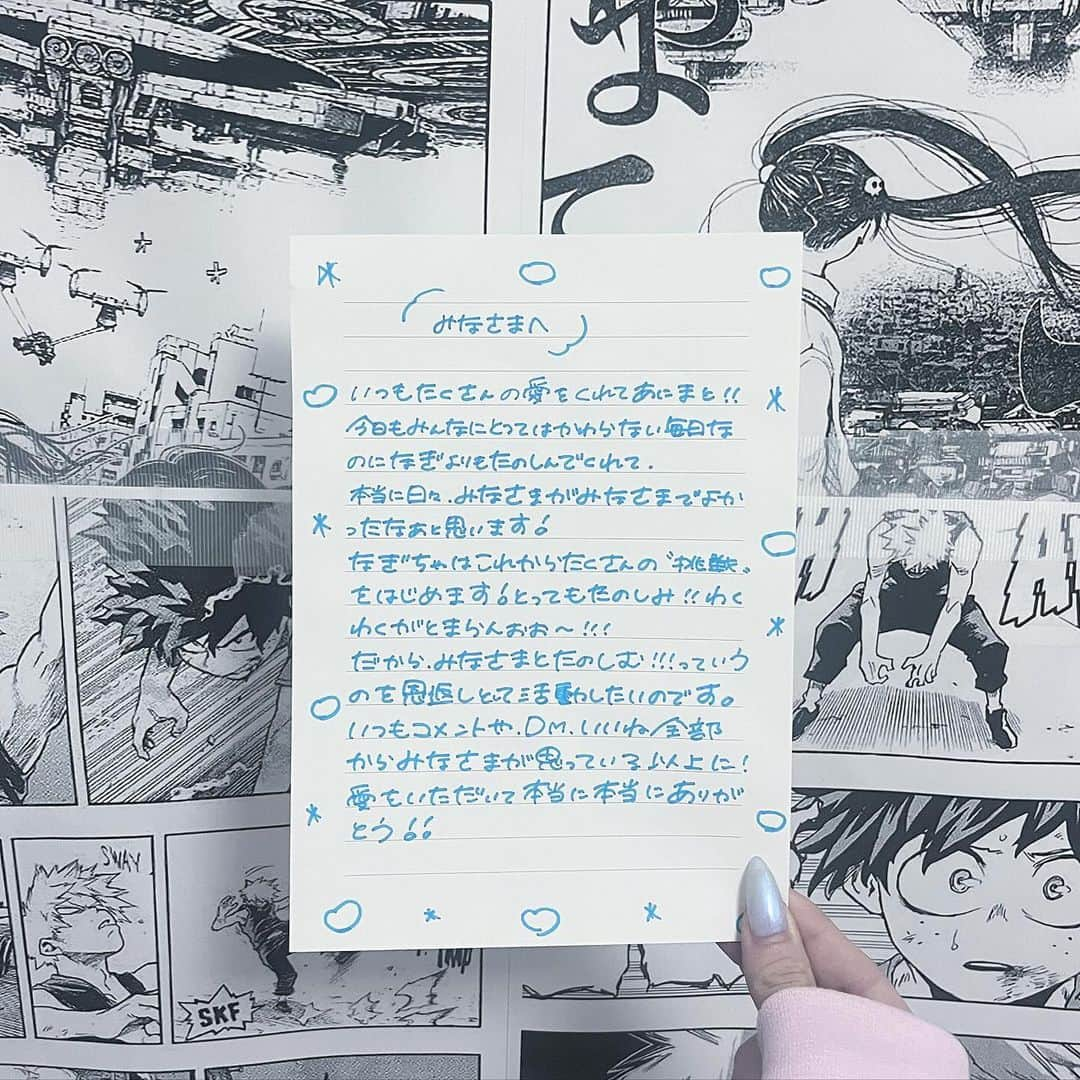 みなさまへ
いつもたくさんの愛をくれてあにまと!!
今日もみんなにとってはかわらない毎日な
のになぎよりもたのしんでくれて、
本当に日々、みなさまがみなさまでよか
ったなぁと思います!
なぎちゃはこれからたくさんの〝挑戦〟
をはじめます!とってもたのしみ!!わく
わくがとまらんおお〜!!!
だから、みなさまとたのしむ!!!っていう
のを恩返しとして活動したいのです。
いつもコメントや、DM、いいね全部
からみなさまが思っている以上に!
愛をいただいて本当に本当にありが
とう!!
SWAY
SKF